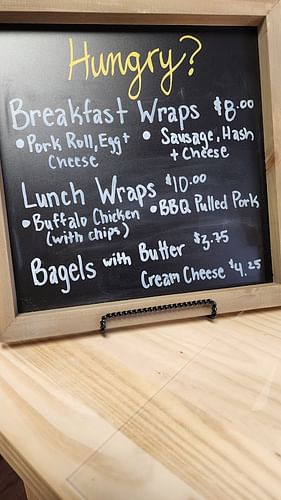 Hungry?
Breakfast Wraps $8.00
• Pork Roll, Egg + • Sausage, Hash
Cheese + Cheese
Lunch Wraps $10.00
• Buffalo Chicken • BBQ Pulled Pork
(with chips)
Bagels with Butter $3.75
Cream Cheese $4.25